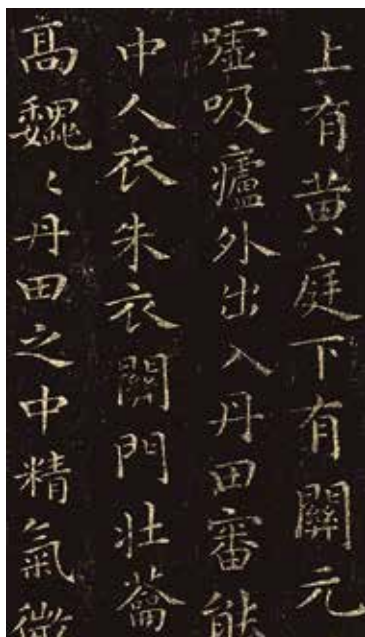 上有黄庭下有關元
嘘吸廬外出入丹田審能
中人衣朱衣關門壯蘥
高巍〻丹田之中精氣微